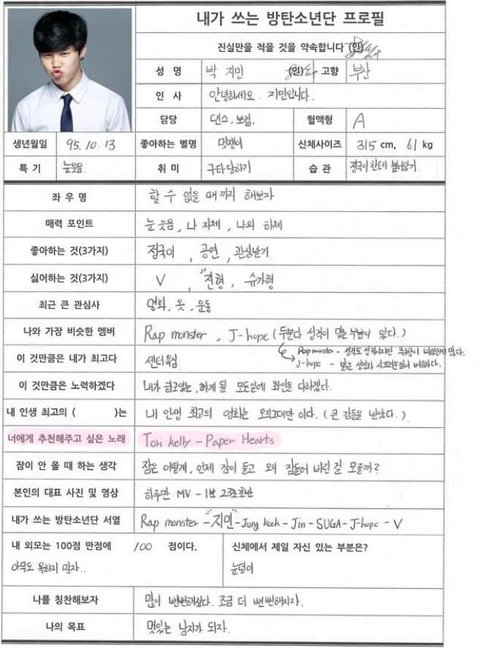 내가 쓰는 방탄소년단 프로필
진실만을 적을 것을 약속합니다 (인)
성 명 박 지민 (인) 고향 부산
인 사 안녕하세요. 지민입니다.
담당 댄스, 보컬, 혈액형 A
생년월일 95. 10. 13 좋아하는 별명 망깨비 신체사이즈 315 cm, 61 kg
특 기 눈웃음 취미 구타당하기 습 관 정국한테 붙어있기
좌 우 명 할 수 없을 때까지 해보자
매력 포인트 눈웃음, 나 자체, 나의 하체
좋아하는 것(3가지) 정국이, 공연, 관심받기
싫어하는 것(3가지) V, "진"형, 슈가형
최근 큰 관심사 영화, 옷, 운동
나와 가장 비슷한 멤버 Rap monster, J-hope (두분다 성격이 맞는 부분이 있다.)
Rap monster -
이 것만큼은 내가 최고다 센터욕심
J-hope -
이 것만큼은 노력하겠다 내가 하고있는, 하게 될 모든일에 최선을 다하겠다.
내 인생 최고의 ( )는 내 인생 최고의 영화는 오직그대만 이다. (큰 감동을 받았다.)
너에게 추천해주고 싶은 노래 Tori Kelly - Paper Hearts
잠이 안 올 때 하는 생각 잠은 어떻게, 언제 잠이 들고 왜 잠들어 버린 걸 모를까?
본인의 대표 사진 및 영상 하루만 MV - 1분 23초
내가 쓰는 방탄소년단 서열 Rap monster - "지민" - Jung Kook - Jin - SUGA - J-hope - V
내 외모는 100점 만점에 100 점이다. 신체에서 제일 자신 있는 부분은?
아무도 욕하지 말자.. 눈덩이
나를 칭찬해보자 많이 뻔뻔해졌다. 조금 더 뻔뻔해지자.
나의 목표 멋있는 남자가 되자.